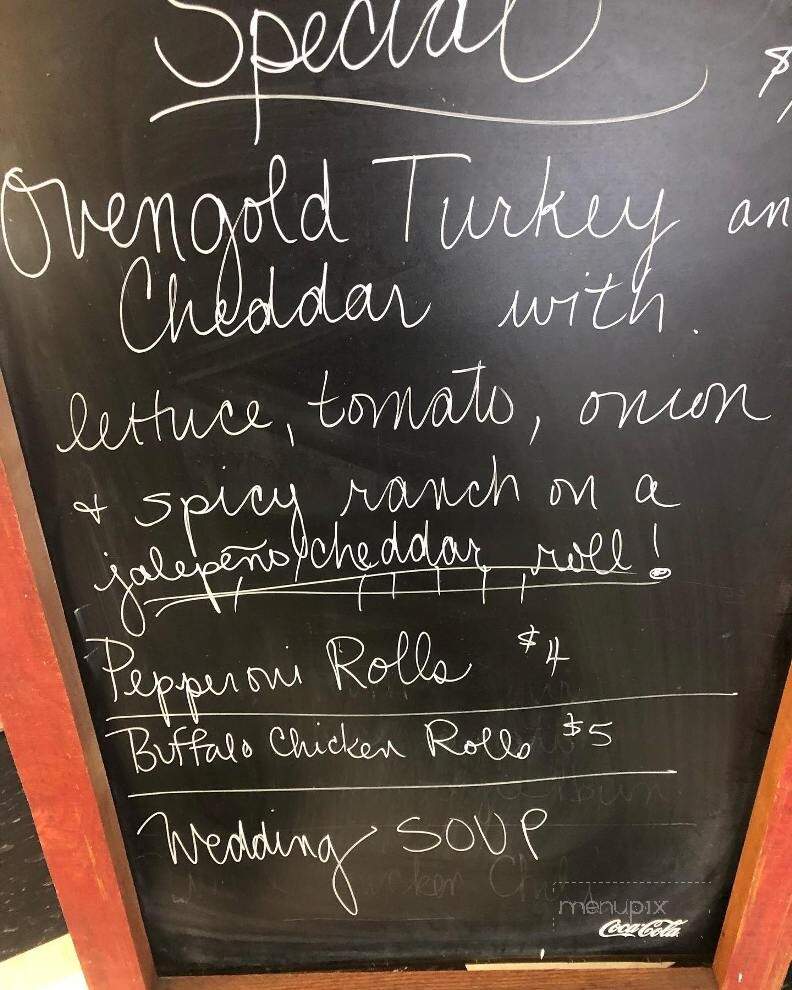 Special
$
Ovengold Turkey an
Cheddar with.
lettuce, tomato, onion
+ spicy ranch on a
jalepeño/cheddar roll!
Pepperoni Rolls $4
Buffalo Chicken Rolls $5
Wedding SOUP
menupix
Coca-Cola